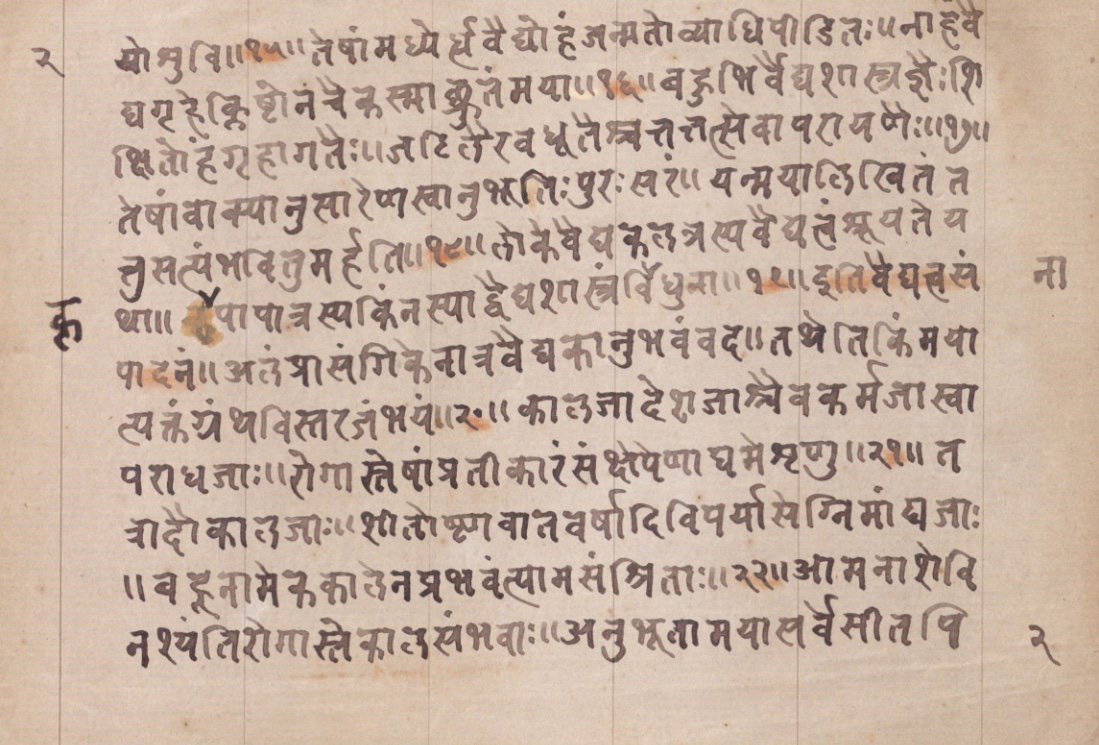 २ यो भुवि॥१५॥तेषां मध्येर्ध्यवैद्योहं जन्मतो व्याधिपीडितः॥नाहं वै
द्यगृहे क्लिष्टो नं चैकस्माछ्रुतं मया॥१६॥बहुभिर्वैद्यशास्त्रज्ञैः शि
क्षितोहं गृहागतैः॥जटिलैरवधूतैश्च तत्तत्सेवापरायणैः॥१७॥
तेषां वाक्यानुसारेण स्वानुभूतिः पुरःसरं॥यन्मयालिखितं त
त्तु सत्यं भवितुमर्हति॥१८॥लोके वैद्यकलत्रस्य वैद्यत्वं श्रूयते य
था॥ पापात्रस्य किं न स्याद्वैद्यशास्त्रंर्विधुना॥१९॥इति वैद्यत्वसं ना
कृ
पादनं॥अलं प्रासंगिकेनात्र वैद्यकानुभवं वद॥तथेति किं मया
त्यक्तं ग्रंथविस्तरजं भयं॥२०॥कालजा देशजाश्चैव कर्मजा स्वा
पराधजाः॥रोगास्तेषां प्रतीकारं संक्षेपेणाद्य मे शृणु॥२१॥त
त्रादौ कालजाः॥शीतोष्णवातवर्षादिविपर्यासेग्निमांद्यजाः
॥बहूनामेककालेन प्रभवंत्यामसंश्रिताः॥२२॥आमनाशे वि
नश्यंति रोगास्ते कालसंभवाः॥अनुभूता मया सर्वे सीतपि २